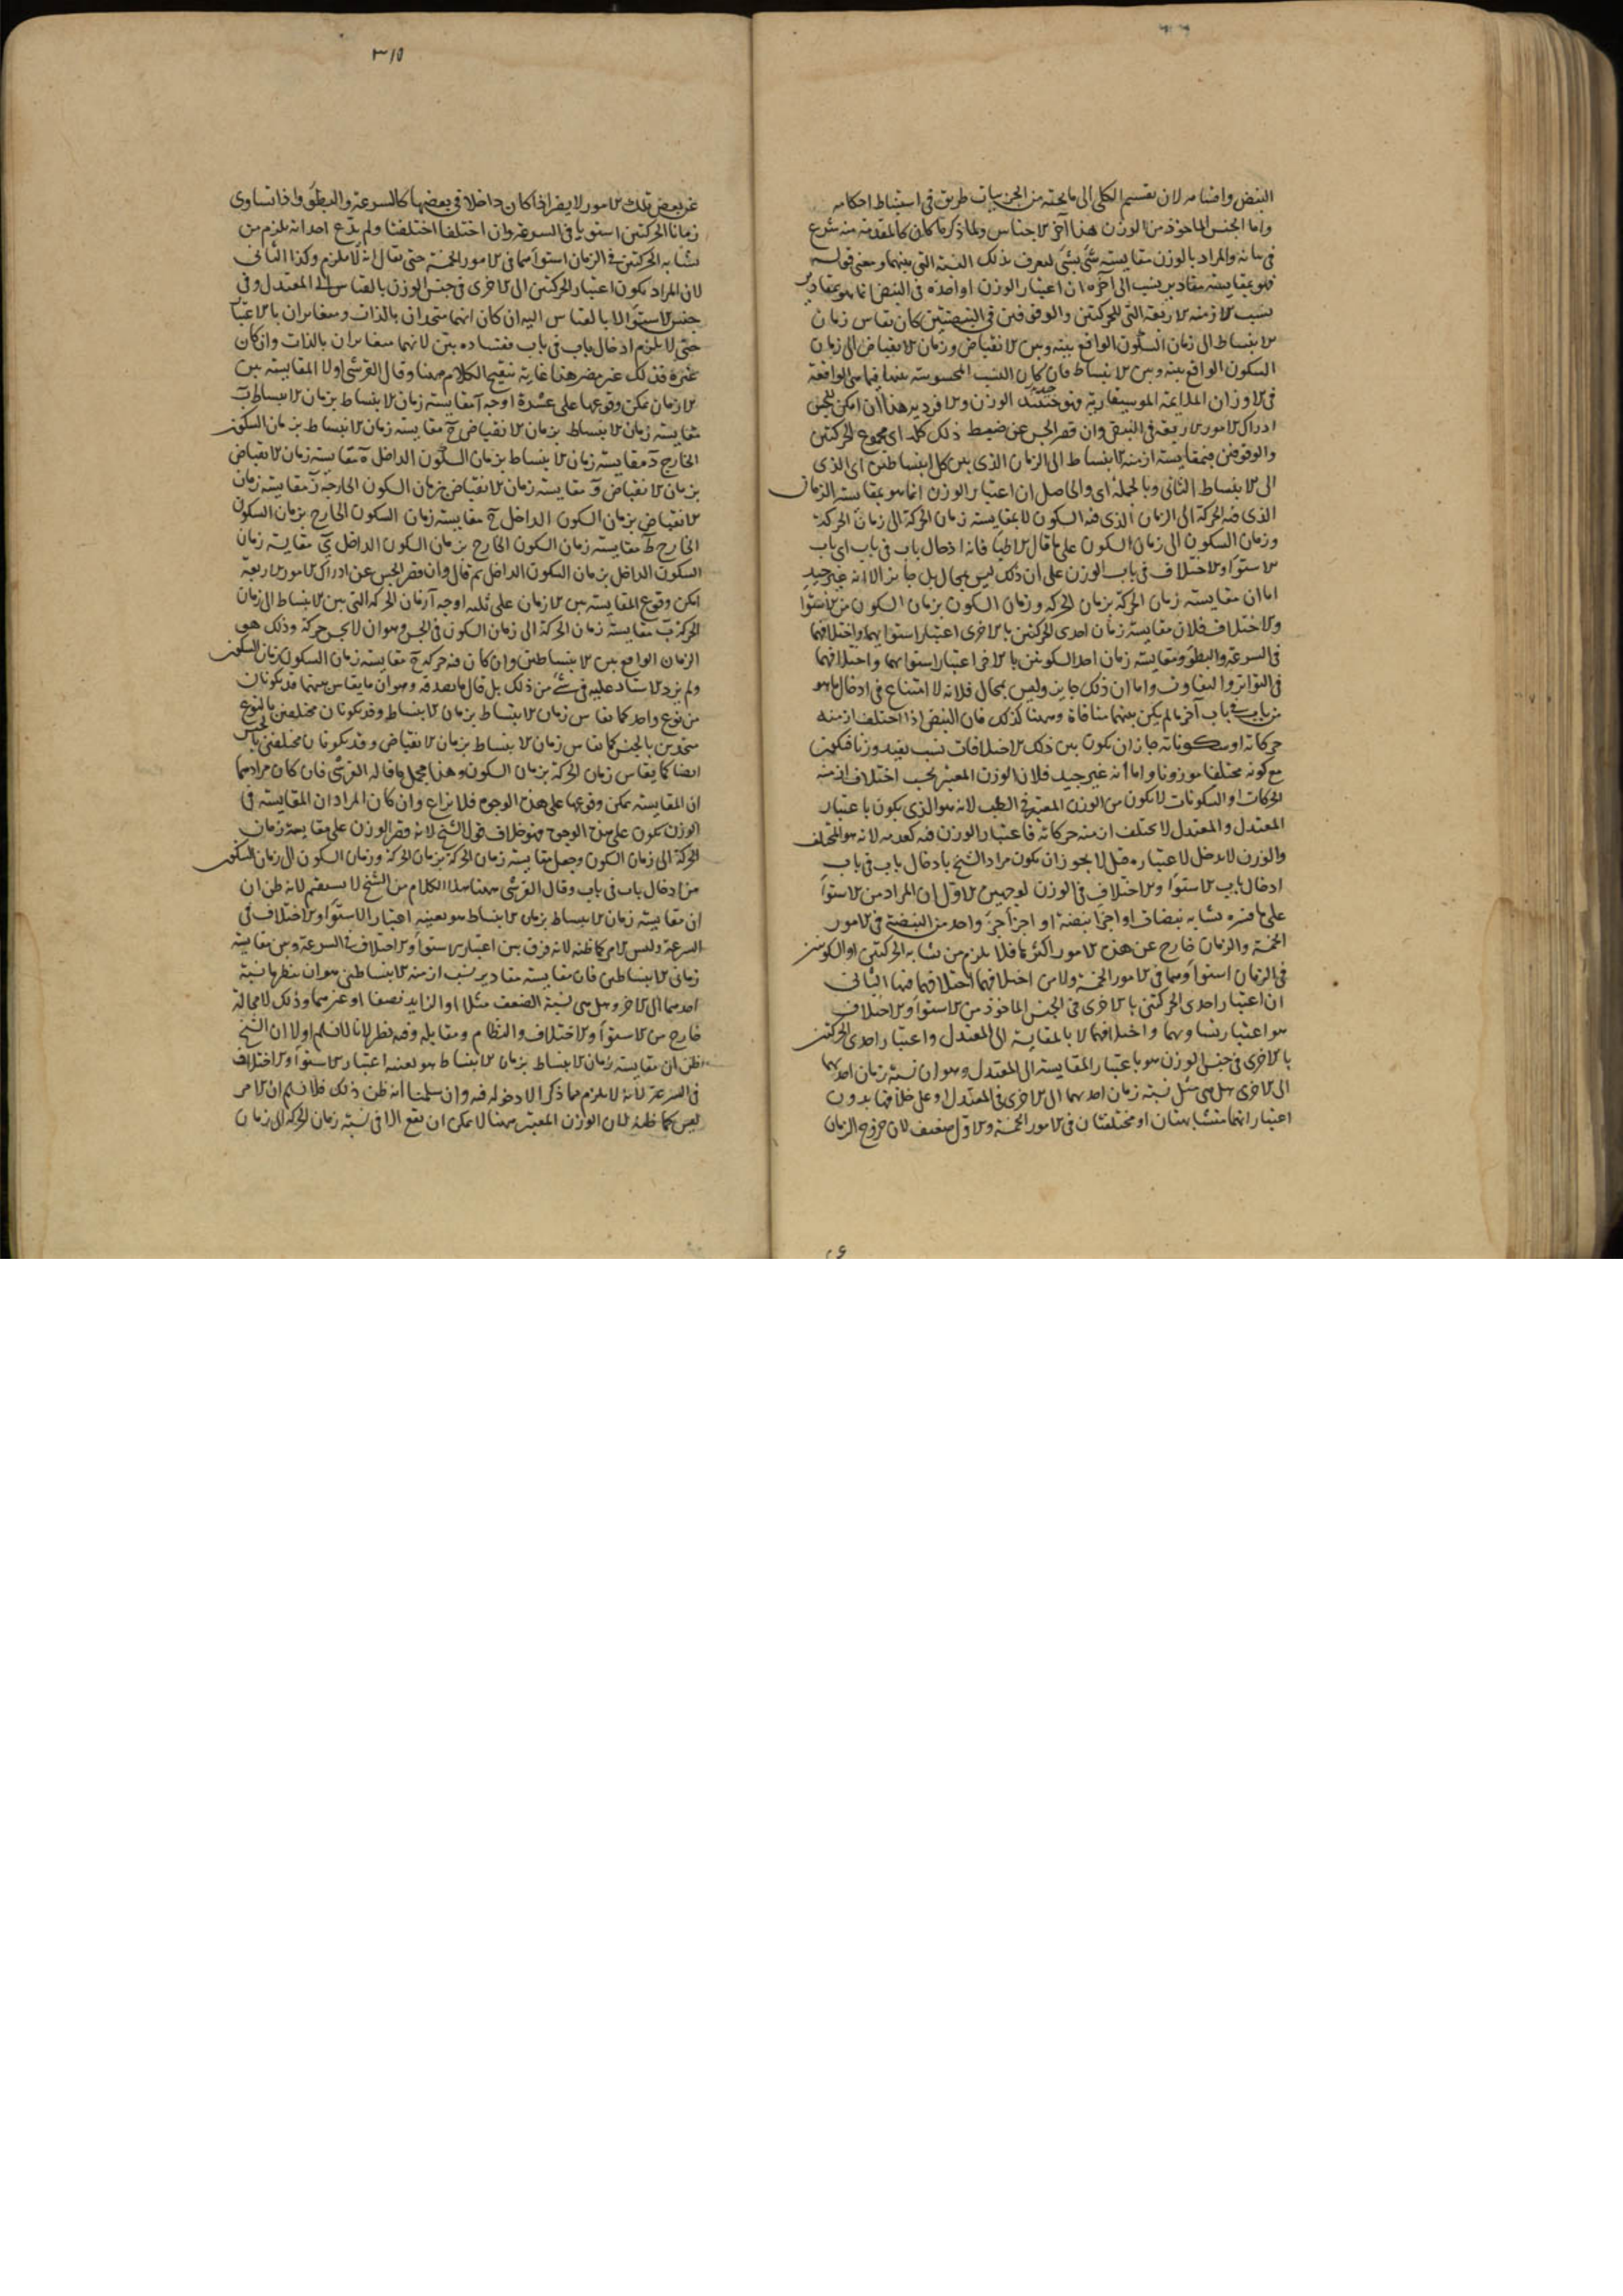 النبض واقسامه لان تقسيم الكلى الى ما تحته من الجزييات طريق فى استنباط احكامه
واما الجنس الماخوذ من الوزن هذا آخر الاجناس ولما ذكر ما كان كالمقدمة منه شرع
فى بيانه والمراد بالوزن مقايسة شئ بشئ ليعرف بذلك النسبة التى بينهما ومعنى قوله
فهو بمقايسة مقادير نسب الى آخره ان اعتبار الوزن او اخذه فى النبض انما هو بمقادير
نسب الازمنة الاربعة التى للحركتين والوقوفين فى النبضتين كان يقاس زمان
الانبساط الى زمان السكون الواقع بينه وبين الانقباض وزمان الانقباض الى زمان
السكون الواقع بينه وبين الانبساط فان كان النسب المحسوسة بينها فيما هى الواقعة
فى الاوزان الموسيقارية فهو الوزن والا فرديه هذا ان امكن للجس
ادراك الامور الاربعة فى النبض وان قصر الجس عن ضبط ذلك كله اى مجموع الحركتين
والوقوفين فبمقايسة ازمنة الانبساط الى الزمان الذى بين كل انبساطين اى الذى
الى الانبساط الثانى وبالجملة اى والحاصل ان اعتبار الوزن انما هو بمقايسة الزمان
الذى فيه الحركة الى الزمان الذى فيه السكون لا بمقايسة زمان الحركة الى زمان الحركة
وزمان السكون الى زمان السكون على ما قال الاطبا فانه ادخال باب فى باب اى باب
الاستوا والاختلاف فى باب الوزن على ان ذلك ليس بمحال بل جايز الا انه غير جيد
اما ان مقايسة زمان الحركة بزمان الحركة وزمان السكون بزمان السكون من الاستوا
والاختلاف فلان مقايسة زمان احدى الحركتين بالاخرى اعتبار استوايهما واختلافهما
فى السرعة والبطؤ ومقايسة زمان احد السكونين بالاخر اعتبار استوايهما واختلافهما
فى التواتر والتفاوت واما ان ذلك جايز وليس بمحال فلانه لا امتناع فى ادخال ما هو
من باب فى باب آخر ما لم يكن بينهما منافاة وههنا كذلك فان النبض اذا اختلف ازمنة
حركاته او سكوناته جاز ان يكون بين ذلك الاختلافات نسب يفيد وزنا فيكون
مع كونه مختلفا موزونا واما انه غير جيد فلان الوزن المعتبر بحسب اختلاف ازمنة
الحركات او السكونات لا يكون من الوزن المعتبر فى الطب لانه هو الذى يكون باعتبار
المعتدل والمعتدل لا يختلف ازمنة حركاته فاعتبار الوزن فيه كعدمه لانه هو المختلف
والوزن لا يدخل لاعتباره قيل لا يجوز ان يكون مراد الشيخ بادخال باب فى باب
ادخال باب الاستوا والاختلاف فى الوزن لوجهين الاول ان المراد من الاستوا
على ما فسره تشابه نبضات او اجزا نبضة او اجزا جز واحد من النبضة فى الامور
الخمسة والزمان خارج عن هذه الامور فلا يلزم من تشابه الحركتين او السكونين
فى الزمان استواوهما فى الامور الخمسة ولا من اختلافهما اختلافهما فيها الثانى
ان اعتبار احدى الحركتين بالاخرى فى الجنس الماخوذ من الاستوا والاختلاف
هو اعتبار تساويهما واختلافهما لا بالمقايسة الى المعتدل واعتبار احدى الحركتين
بالاخرى فى جنس الوزن هو باعتبار المقايسة الى المعتدل وهو ان نسبة زمان احديهما
الى الاخرى هل هى مثل نسبة زمان احديهما الى الاخرى فى المعتدل او على خلافها بدون
اعتبار انهما متشابهتان او مختلفتان فى الامور الخمسة والاول ضعيف لان خروج الزمان
٣١٥
عن بعض تلك الامور لا يضر اذا كان داخلا فى بعضها كالسرعة والبطؤ واذا تساوى
زمانا الحركتين استويا فى السرعة وان اختلفا اختلفتا ولم يدع احد انه يلزم من
تشابه الحركتين فى الزمان استواوهما فى الامور الخمسة حتى يقال انه لا يلزم وكذا الثانى
لان المراد بكون اعتبار الحركتين الى الاخرى فى جنس الوزن بالقياس الى المعتدل وفى
جنس الاستوا لا بالقياس اليه ان كان انهما متحدان بالذات ومتغايران بالاعتبار
حتى لا يلزم ادخال باب فى باب ففساده بين لانهما متغايران بالذات وان كان
غيره فذلك غير مضر هذا غاية تنقيح الكلام ههنا وقال القرشى اولا المقايسة بين
الازمان يمكن وقوعها على عشرة اوجه آ مقايسة زمان الانبساط بزمان الانبساط ب
مقايسة زمان الانبساط بزمان الانقباض ج مقايسة زمان الانبساط بزمان السكون
الخارج د مقايسة زمان الانبساط بزمان السكون الداخل ه مقايسة زمان الانقباض
بزمان الانقباض و مقايسة زمان الانقباض بزمان السكون الخارج ز مقايسة زمان
الانقباض بزمان السكون الداخل ح مقايسة زمان السكون الخارج بزمان السكون
الخارج ط مقايسة زمان السكون الخارج بزمان السكون الداخل ى مقايسة زمان
السكون الداخل بزمان السكون الداخل ثم قال وان قصر الجس عن ادراك الامور الاربعة
امكن وقوع المقايسة بين الازمان على ثلثة اوجه آ زمان الحركة التى بين الانبساط الى زمان
الحركة ب مقايسة زمان الحركة الى زمان السكون فى الجس وهو ان لا يحس حركة وذلك هو
الزمان الواقع بين الانبساطين وان كان فيه حركة ج مقايسة زمان السكون بزمان السكون
ولم يزد الاستاد عليه فى شئ من ذلك بل قال ما يصدقه وهو ان ما يقاس بينهما قد يكونان
من نوع واحد كما يقاس زمان الانبساط بزمان الانبساط وقد يكونان مختلفين بالنوع
متحدين بالجنس كما يقاس زمان الانبساط بزمان الانقباض وقد يكونان مختلفين بالجنس
ايضا كما يقاس زمان الحركة بزمان السكون وهذا مجمل ما قاله القرشى فان كان مرادهما
ان المقايسة يمكن وقوعها على هذه الوجوه فلا نزاع وان كان المراد ان المقايسة فى
الوزن يكون على هذه الوجوه فهو خلاف قول الشيخ لانه قصر الوزن على مقايسة زمان
الحركة الى زمان السكون وجعل مقايسة زمان الحركة بزمان الحركة وزمان السكون الى زمان السكون
من ادخال باب فى باب وقال القرشى ههنا هذا الكلام من الشيخ لا يستقيم لانه ظن ان
ان مقايسة زمان الانبساط بزمان الانبساط هو بعينه اعتبار الاستوا والاختلاف فى
السرعة وليس الامر كما ظنه لانه فرق بين اعتبار الاستوا والاختلاف فى السرعة وبين مقايسة
زمانى الانبساطين فان مقايسة مقادير نسب ازمنة الانبساطين هو ان ينظر ما نسبة
احدهما الى الاخر وهل هى نسبة الضعف مثلا او الزايد نصفا او غيرهما وذلك لا محالة
خارج من الاستوا والاختلاف والنظام ومقابله وفيه نظر لانا لا نسلم اولا ان الشيخ
ظن ان مقايسة زمان الانبساط بزمان الانبساط هو بعينه اعتبار الاستوا والاختلاف
فى السرعة لانه لا يلزم مما ذكر الا دخوله فيه وان سلمنا انه ظن ذلك فلا نسلم ان الامر
ليس كما ظنه لان الوزن المعتبر ههنا لا يمكن ان يقع الا فى نسبة زمان الحركة الى زمان